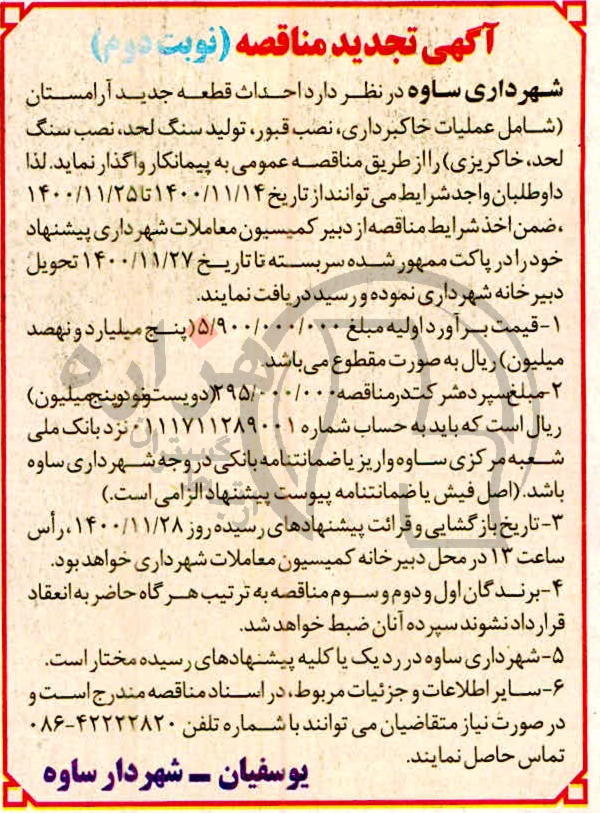 آگهی تجدید مناقصه (نوبت دوم)
شهرداری ساوه در نظر دارد احداث قطعه جدید آرامستان
(شامل عملیات خاکبرداری، نصب قبور، تولید سنگ لحد، نصب سنگ
لحد، خاکریزی) را از طریق مناقصه عمومی به پیمانکار واگذار نماید. لذا
داوطلبان واجد شرایط می توانند از تاریخ ۱۴۰۰/۱۱/۱۴ تا ۱۴۰۰/۱۱/۲۵
، ضمن اخذ شرایط مناقصه از دبیر کمیسیون معاملات شهرداری پیشنهاد
خود را در پاکت ممهور شده سربسته تا تاریخ ۱۴۰۰/۱۱/۲۷ تحویل
دبیرخانه شهرداری نموده و رسید دریافت نمایند.
۱-قیمت برآورد اولیه مبلغ ۵/۹۰۰/۰۰۰/۰۰۰ (پنج میلیارد و نهصد
میلیون) ریال به صورت مقطوع می باشد.
۲-مبلغ سپرده شرکت در مناقصه ۲۹۵/۰۰۰/۰۰۰ (دویست و نود و پنج میلیون)
ریال است که باید به حساب شماره ۰۱۱۱۷۱۱۲۸۹۰۰۱ نزد بانک ملی
شعبه مرکزی ساوه واریز یا ضمانتنامه بانکی در وجه شهرداری ساوه
باشد. (اصل فیش یا ضمانتنامه پیوست پیشنهاد الزامی است.)
۳-تاریخ بازگشایی و قرائت پیشنهادهای رسیده روز ۱۴۰۰/۱۱/۲۸، رأس
ساعت ۱۳ در محل دبیرخانه کمیسیون معاملات شهرداری خواهد بود.
۴-برندگان اول و دوم و سوم مناقصه به ترتیب هر گاه حاضر به انعقاد
قرارداد نشوند سپرده آنان ضبط خواهد شد.
۵-شهرداری ساوه در رد یک یا کلیه پیشنهادهای رسیده مختار است.
۶-سایر اطلاعات و جزئیات مربوط، در اسناد مناقصه مندرج است و
در صورت نیاز متقاضیان می توانند با شماره تلفن ۴۲۲۲۲۸۲۰-۰۸۶
تماس حاصل نمایند.
یوسفیان – شهردار ساوه